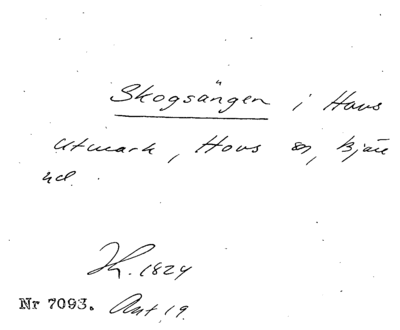 Skogsängen i Hovs
utmark, Hovs sn, Bjäre
hd.
Th. 1824
Nr 7093. Avt 19.